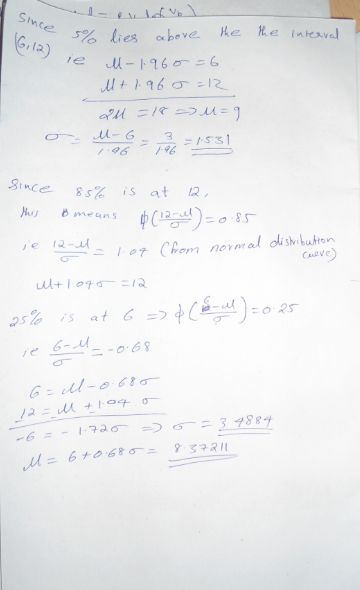 Since 5% lies above the the interval
(6,12) ie μ-1.96σ = 6
μ+1.96σ = 12
2μ = 18 => μ = 9
σ = μ-6/1.96 = 3/1.96 = 1.531
Since 85% is at 12,
this means φ(12-μ/σ) = 0.85
ie 12-μ/σ = 1.04 (from normal distribution
curve)
μ+1.04σ = 12
25% is at 6 => φ(6-μ/σ) = 0.25
ie 6-μ/σ = -0.68
6 = μ-0.68σ
12 = μ+1.04σ
-6 = -1.72σ => σ = 3.4884
μ = 6+0.68σ = 8.37211